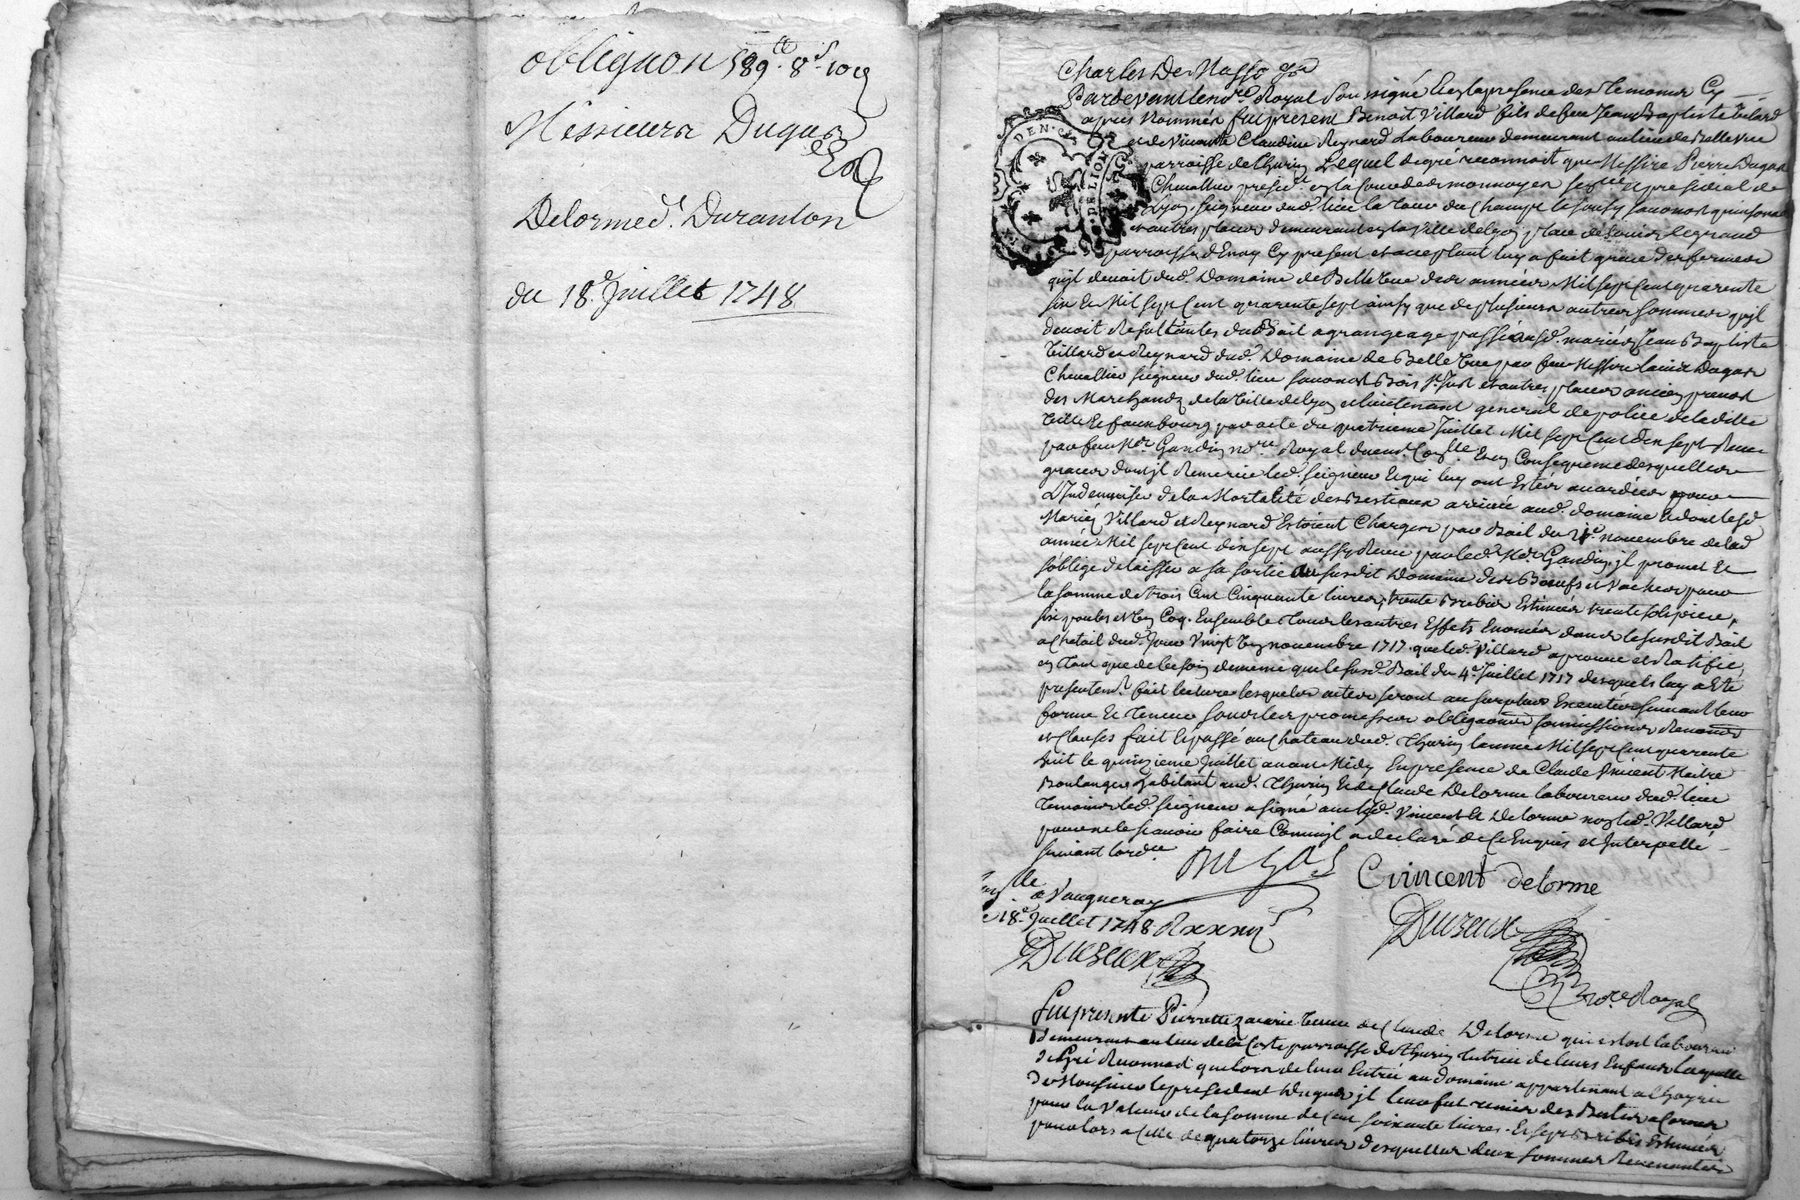 obligaon 589.tt 8s 10d
Messieurs Dugas
&a
Delorme & Duranton
du 18.e Juillet 1748
Charles De Masso
Pardevant le no.re Royal soussigné Et en la presence des Temoins Cy
apres Nommés fut present Benoit Villard fils de feu Jean Baptiste Villard
et de vivante Claudine Reynard Laboureur demeurant au lieu de Belle vue
parroisse de Thurin Lequel de gré reconnoit que Messire Pierre Dugas
Chevallier presid.t en la cour des monnoyes sen.ée et presidial de
Lyon Seigneur dud. lieu la Tour du Champt savonost quinsonas
et autres places demeurant en la ville de Lyon place de Louis le grand
parroisse d'Enay Cy present et acceptant luy a fait grace des fermes
qu'il devoit dud. Domaine de Belle Vue des années Mil sept Cent quarente
six Et Mil sept Cent quarente sept ainsy que de plusieurs autres sommes qu'jl
devoit Resultantes du Bail a grangeage passé aud. mariés Jean Baptiste
Villard et Reynard dud. Domaine de Belle Vue par feu Messire Louis Dugas
Chevallier seigneur dud. lieu savonost Bois S.t Just et autres places ancien prevost
des Marchands de la Ville de Lyon et lieutenant general de police de la ditte
Ville et fauxbourg par acte du quatrieme Juillet Mil sept Cent dix sept Receu
par feu M.e Gandin no.re Royal Et en Consequence desquelles
graces dont jl Remercie led. seigneur Et qui luy ont Estés accordées pour
L'Indemniser de la Mortalité des Bestiaux arrivée aud. domaine Et dont lesd.
Mariés Villard et Reynard Estoient Chargés par Bail du 21.e novembre de lad.
année Mil sept Cent dix sept aussy Receu par led. M.e Gandin, jl promet Et
s'oblige de laisser a sa sortie du susdit Domaine des Bœufs et Vaches pour
la somme de trois Cent Cinquante livres, trente Brebis Estimées trente sols piece,
six poules et un Coq. Ensemble Tous les autres Effets Enoncés dans le susdit Bail
a chetail dud. Jour Vingt un novembre 1717. que led. Villard aprouve et Ratifie
en Tant que de besoin de meme que le susd. Bail du 4.e Juillet 1717 desquels luy a Eté
presentem.t fait lecture lesquels actes seront au surplus Executés suivant leur
forme Et Teneur sous les promesses obligaons soumissions Renonces
et Clauses fait Et passé au Chateau dud. Thurin l'année Mil sept Cent quarente
huit le quinzieme Juillet avant Midy En presence de Claude Vincent Maitre
Boulanger habitant aud. Thurin Et de Claude Delorme laboureur dud. lieu
Temoins led. seigneur a signé avec lesd. Vincent Et Delorme non led. Villard
pour ne le scavoir faire Comme jl a declaré de Ce Enquis et Interpellé
suivant l'ord.ce
Dugas
C vincent delorme
a Vaugneray
18.e Juillet 1748
Duseux
Duseux
no.re Royal
Fut presente Pierrette Zacarie Veuve de Claude Delorme qui estoit laboureur
Demeurant au lieu de la Coste parroisse de Thurin tutrice de leurs Enfans laquelle
De gré Reconnoit que lors de leur Entrée au domaine appartenant a l'hoyrie
De Monsieur le president Dugas jl leur fut remis des Bestes a Cornes
pour la Valeur de la somme de Cent soixante livres. Et sept Brebis Estimées
pour lors a Celle de quatorze livres desquelles deux sommes Revenantes